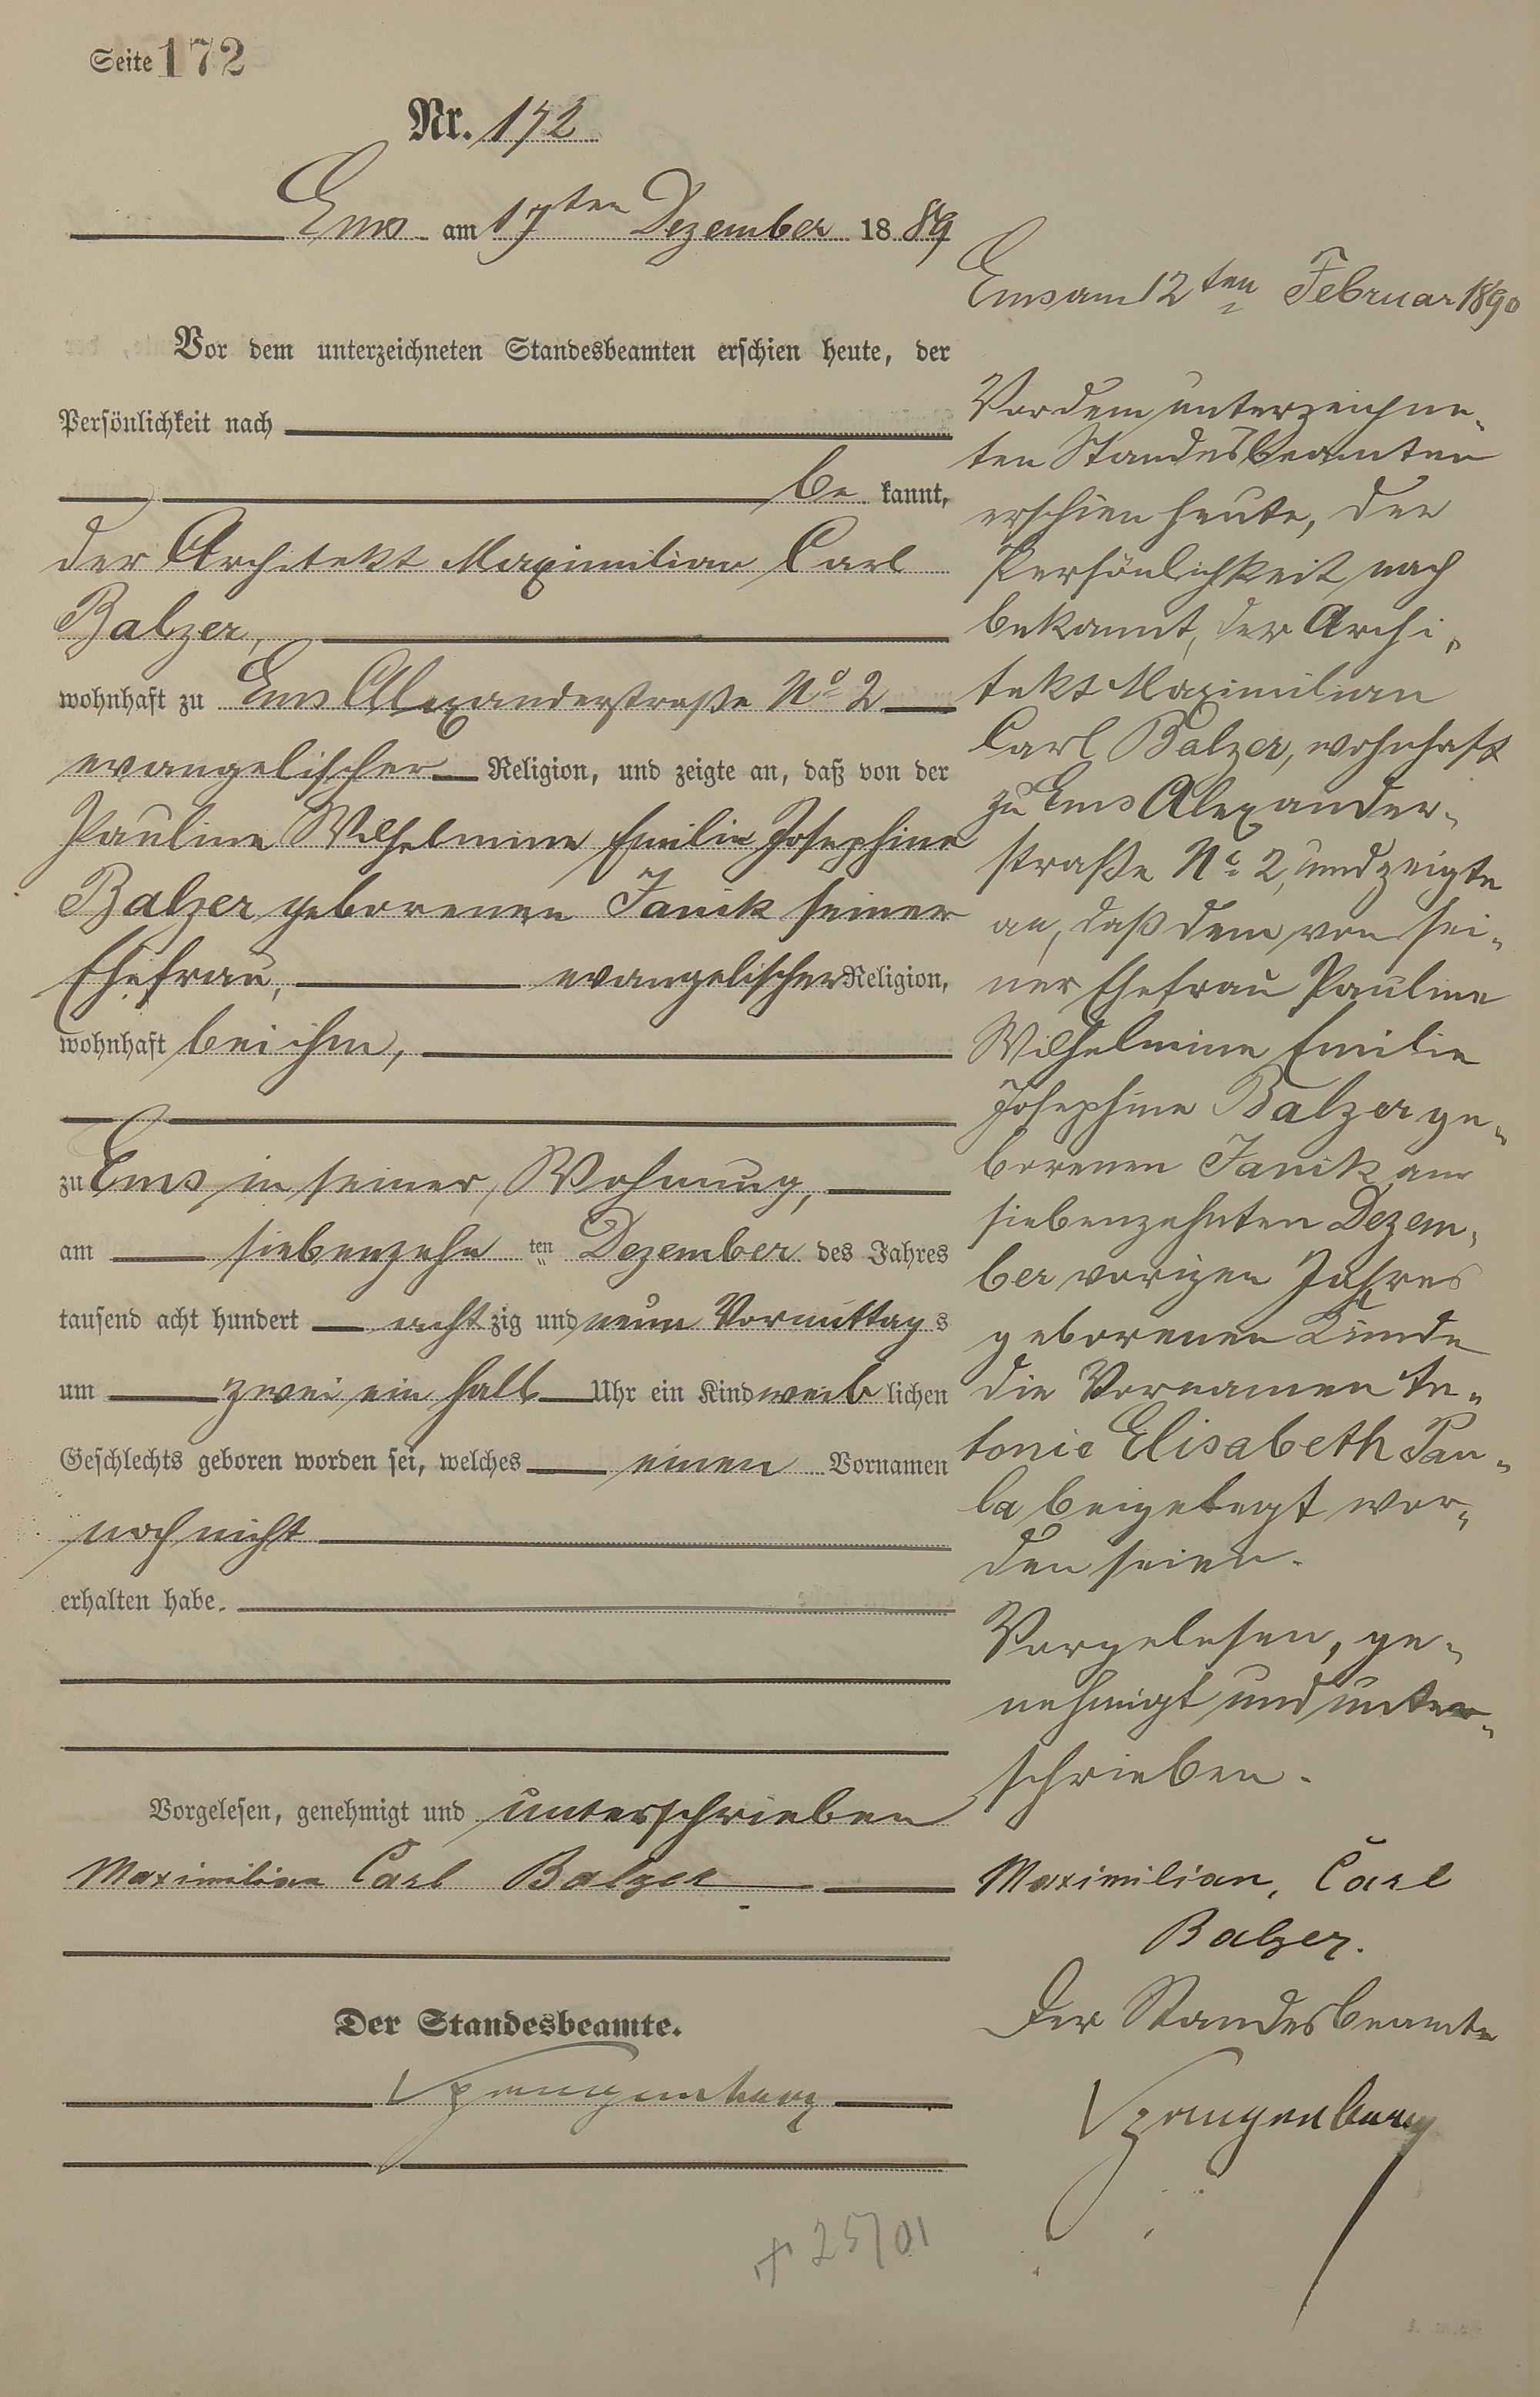 Seite 172
Nr. 172
Ems am 17ten Dezember 1889
Vor dem unterzeichneten Standesbeamten erschien heute, der
Persönlichkeit nach
be kannt,
der Architekt Maximilian Carl
Balzer,
wohnhaft zu Ems Alexanderstraße No 2
evangelischer Religion, und zeigte an, daß von der
Pauline Wilhelmine Emilie Josephine
Balzer geborenen Janik seiner
Ehefrau, evangelischer Religion,
wohnhaft bei ihm,
zu Ems in seiner Wohnung,
am siebenzehn ten Dezember des Jahres
tausend acht hundert acht zig und neun Vormittag s
um zwei ein halb Uhr ein Kind weib lichen
Geschlechts geboren worden sei, welches einen Vornamen
noch nicht
erhalten habe.
Vorgelesen, genehmigt und unterschrieben
Maximilian Carl Balzer
Der Standesbeamte.
Spangenberg
25/01
Ems am 12ten Februar 1890
Vor dem unterzeichne-
ten Standesbeamten
erschien heute, der
Persönlichkeit nach
bekannt, der Archi-
tekt Maximilian
Carl Balzer, wohnhaft
zu Ems Alexander-
straße No 2, und zeigte
an, daß dem von sei-
ner Ehefrau Pauline
Wilhelmine Emilie
Josephine Balzer ge-
borenen Janik am
siebenzehnten Dezem-
ber vorigen Jahres
geborenen Kinde
die Vornamen
Elisabeth Pau-
la beigelegt wor-
den seien.
Vorgelesen, ge-
nehmigt und unter-
schrieben.
Maximilian, Carl
Balzer.
Der Standesbeamte
Spangenberg